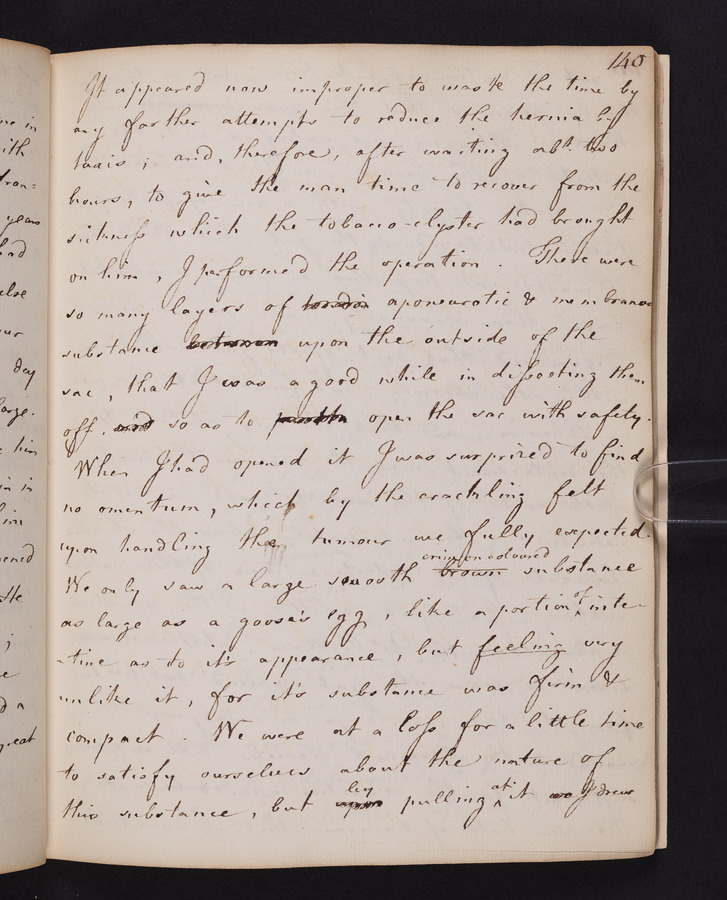 140
It appeared now improper to waste the time by
any farther attempts to reduce the hernia by
taxis ; and, therefore, after waiting abt. two
hours, to give the man time to recover from the
sickness which the tobacco-clyster had brought
on him , I performed the operation . There were
so many layers of aponeurotic & membranous
substance between upon the outside of the
sac , that I was a good while in dissecting them
off, and so as to open the sac with safety.
When I had opened it I was surprized to find
no omentum , which by the crackling felt
upon handling the tumour we fully expected.
crimson coloured
We only saw a large smooth brown substance
as large as a goose's egg , like a portion of inte-
-tine as to it's appearance , but feeling very
unlike it , for it's substance was firm &
compact . We were at a loss for a little time
to satisfy ourselves about the nature of
by
this substance , but upon pulling at it I drew
me in
ith
years
had
else
our
day
large.
him
in in
him
He
;
d a
great